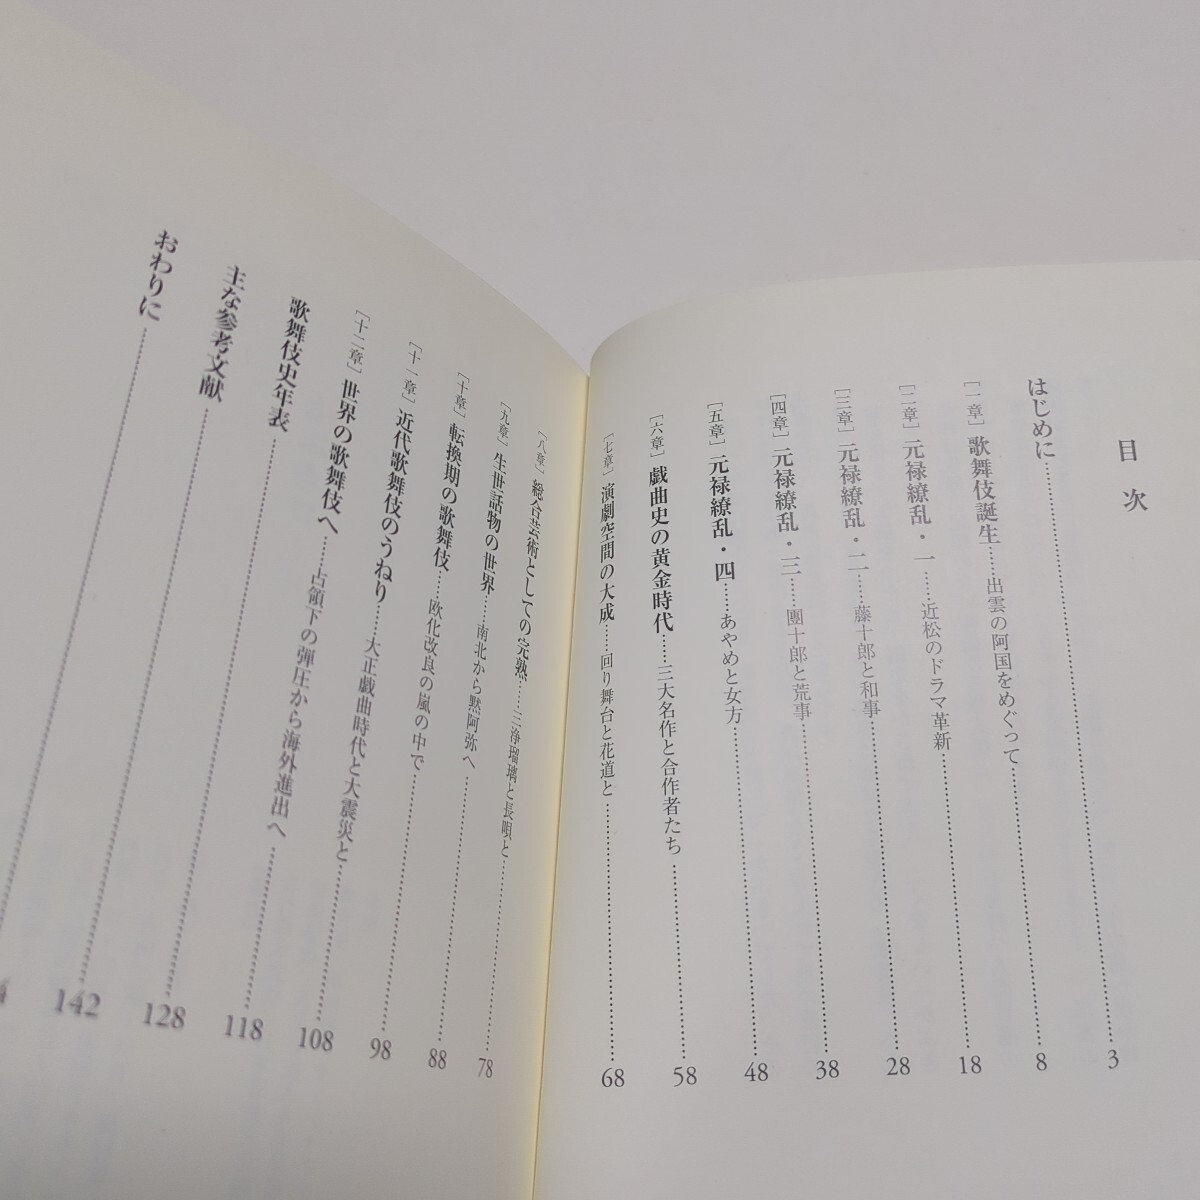 目次
はじめに……3
［一章］歌舞伎誕生……出雲の阿国をめぐって……8
［二章］元禄繚乱・一……近松のドラマ革新……18
［三章］元禄繚乱・二……藤十郎と和事……28
［四章］元禄繚乱・三……團十郎と荒事……38
［五章］元禄繚乱・四……あやめと女方……48
［六章］戯曲史の黄金時代……三大名作と合作者たち……58
［七章］演劇空間の大成……回り舞台と花道と……68
［八章］総合芸術としての完熟……三浄瑠璃と長唄と……78
［九章］生世話物の世界……南北から黙阿弥へ……88
［十章］転換期の歌舞伎……欧化改良の嵐の中で……98
［十一章］近代歌舞伎のうねり……大正戯曲時代と大震災と……108
［十二章］世界の歌舞伎へ……占領下の弾圧から海外進出へ……118
歌舞伎史年表……128
主な参考文献……142
おわりに……4